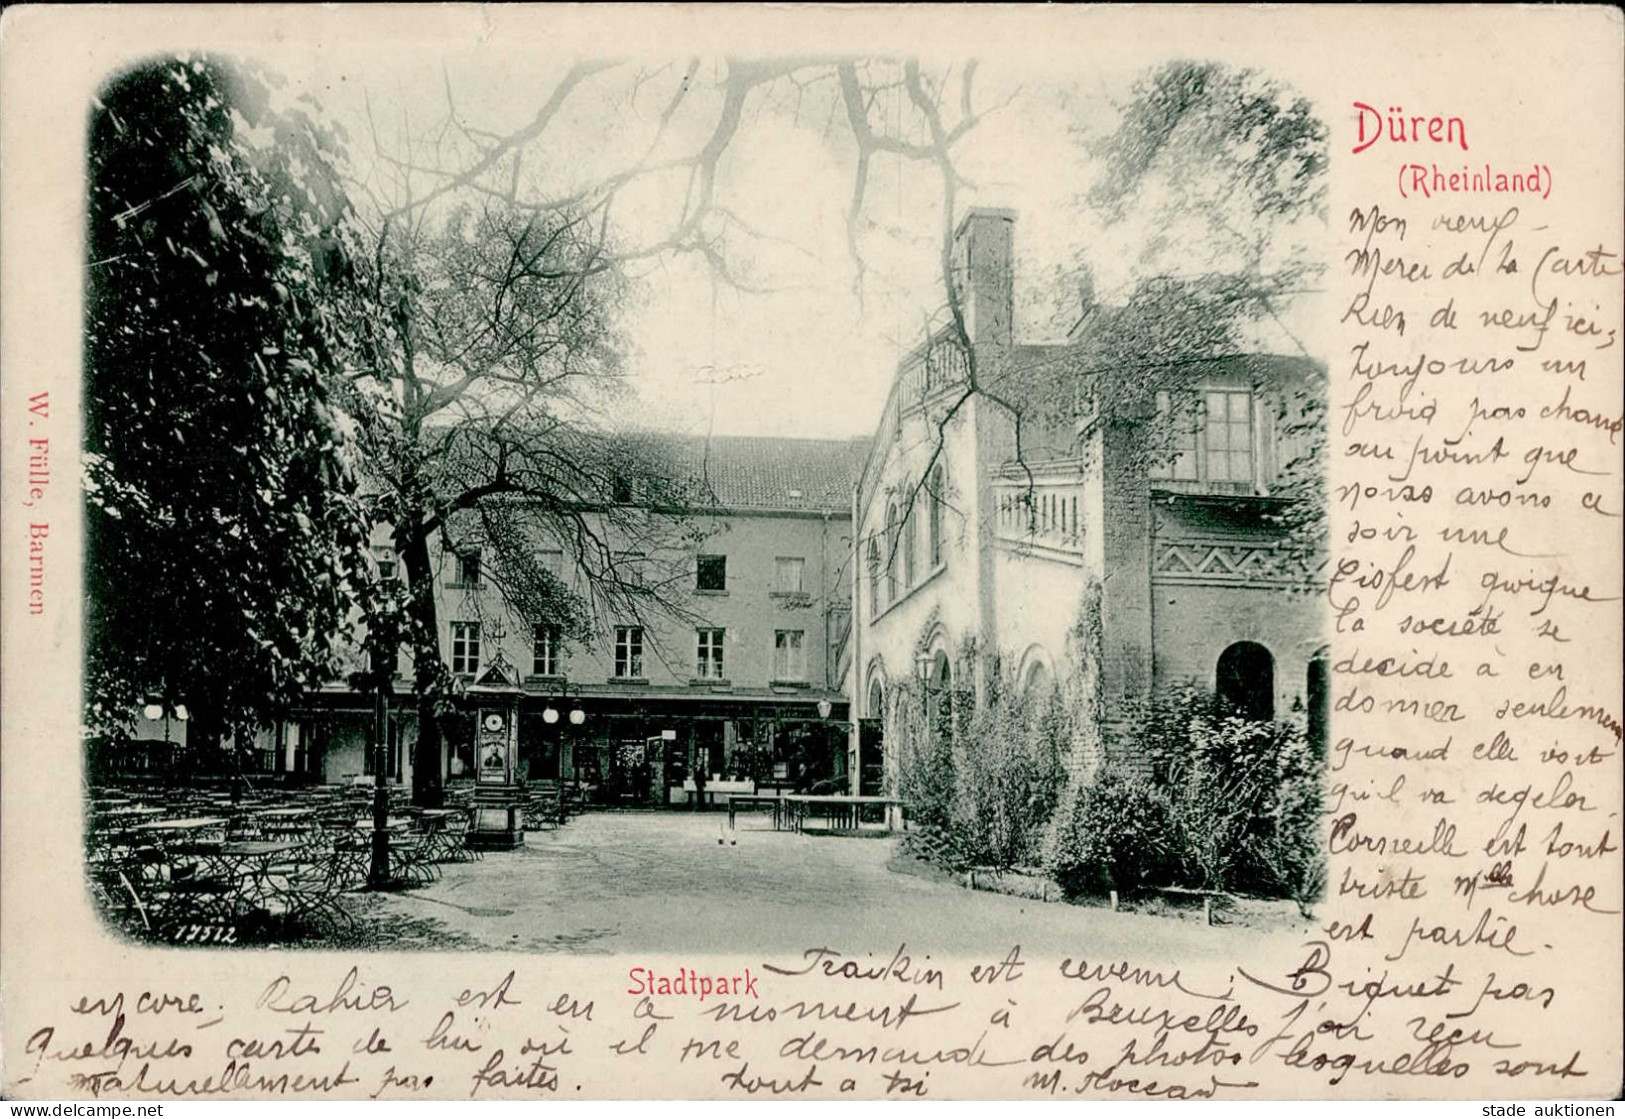 Düren
(Rheinland)
Mon vieux -
Merci de ta Carte
Rien de neuf ici,
Toujours un
froid pas chaud
au point que
nous avons ce
soir une
Eisfest quoique
la société se
decide à en
donner seulement
quand elle voit
qu'il va degeler.
Corneille est tout
triste Mlle chose
est partie.
Stadtpark
est revenu; Biquet pas
encore. est en ce moment à Bruxelles j'ai reçu
Quelques cartes de lui où il me demande des photos lesquelles sont
naturellement pas faites. tout a toi M.
W. Fülle, Barmen
17512
stade auktionen